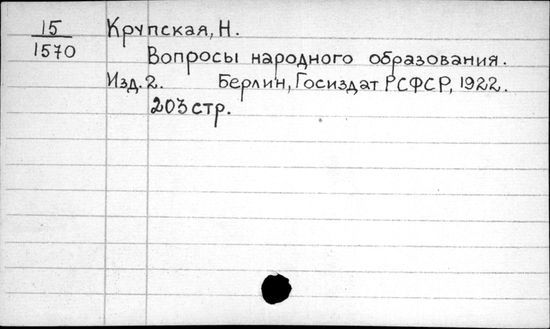 15 Крупская, Н.
1570 Вопросы народного образования.
Изд. 2. Берлин, Госиздат РСФСР, 1922.
203 стр.